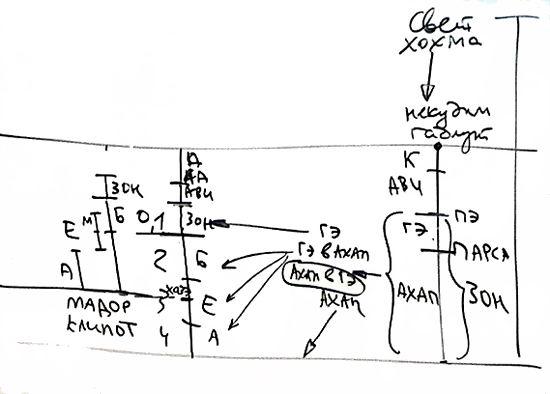 Свет
хохма
некудим
гадлут
К
АВИ
ПЭ
ГЭ
ПАРСА
АХАП
ЗОН
К
АА
АВИ
ЗОН
0,1
2
Б
3
Е
4
А
ГЭ
ГЭ в АХАП
АХАП в ГЭ
АХАП
ЗОН
Б
М
Е
А
МАДОР
КЛИПОТ